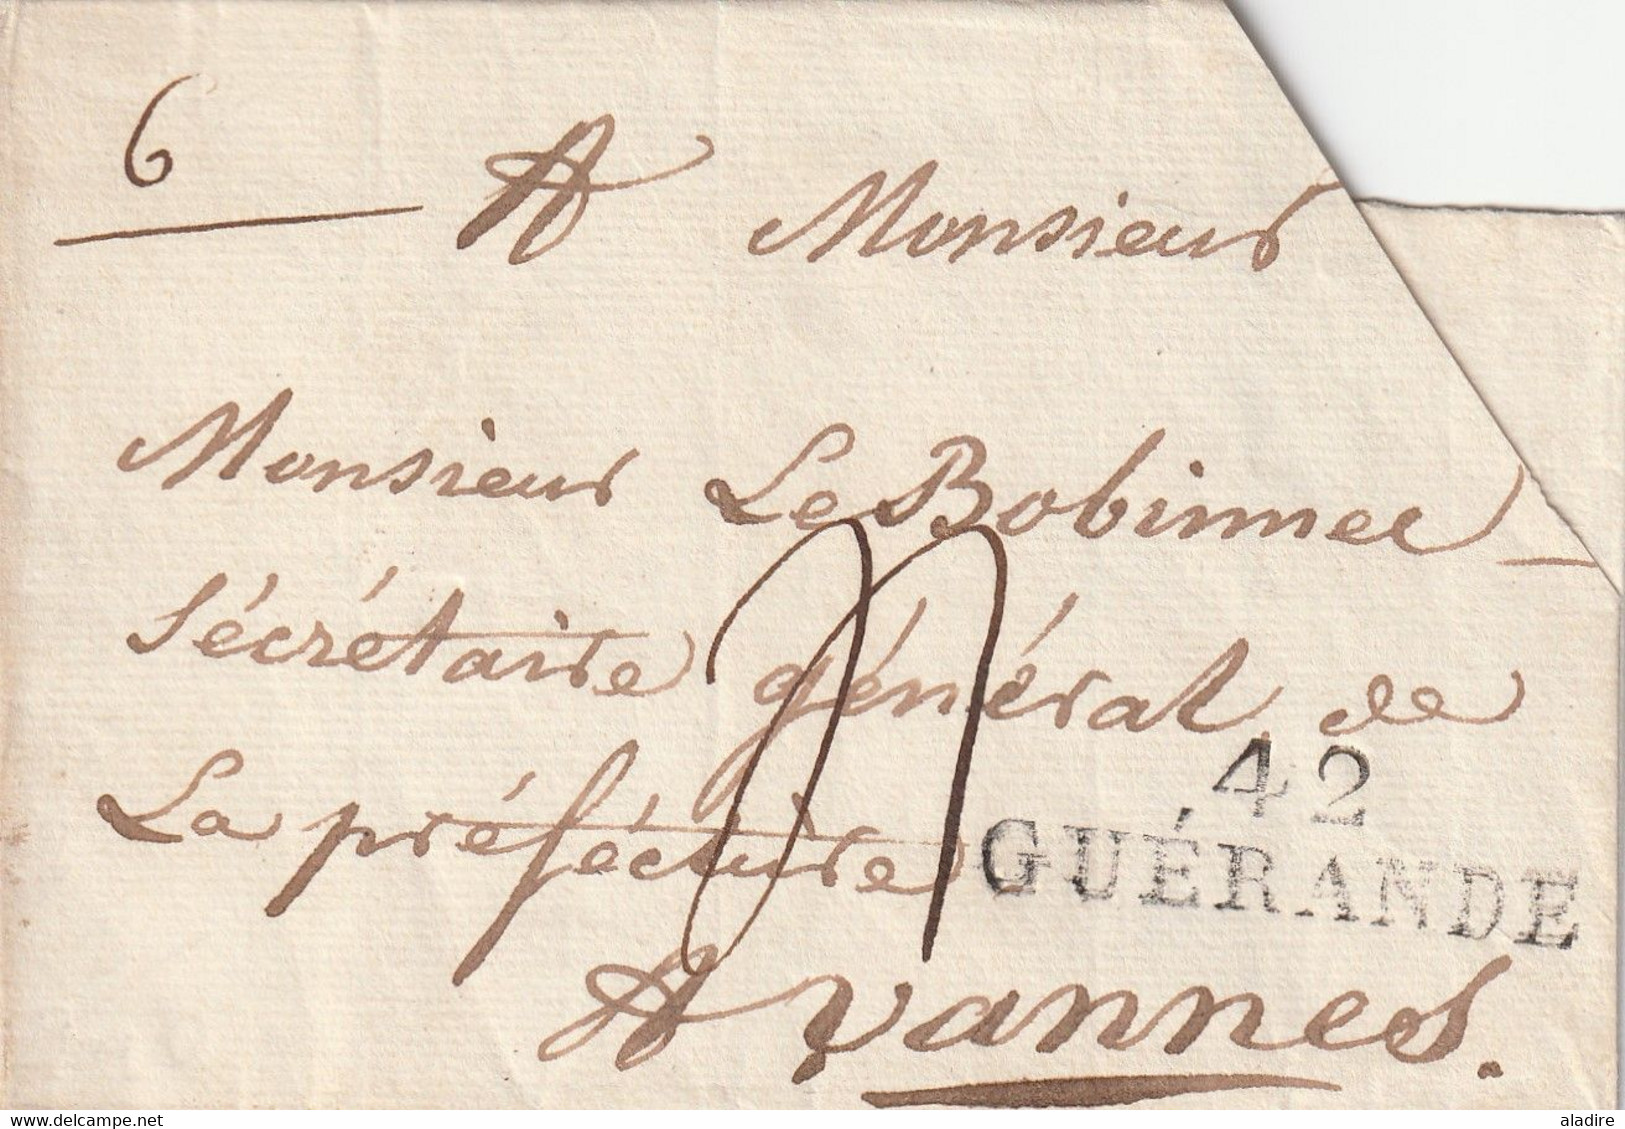 6
A Monsieur
Monsieur Le Bobinnec
Sécrétaire général de
La préfécture
42
GUÉRANDE
A vannes.
aladire